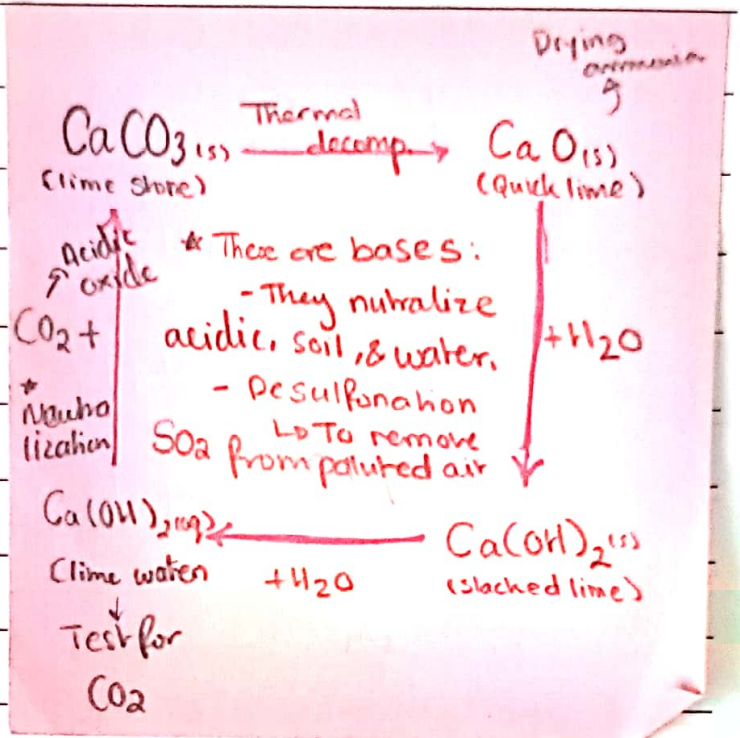 Drying
ammonia
CaCO3(s) Thermal decomp. CaO(s)
(lime stone) (Quick lime)
Acidic
oxide
CO2 +
* Neutra
lization
* These are bases:
- They nutralize
acidic, soil, & water.
- Desulfonation
↳ To remove
SO2 from poluted air
+H2O
Ca(OH)2(aq) Ca(OH)2(s)
(lime water) +H2O (slacked lime)
Test for
CO2